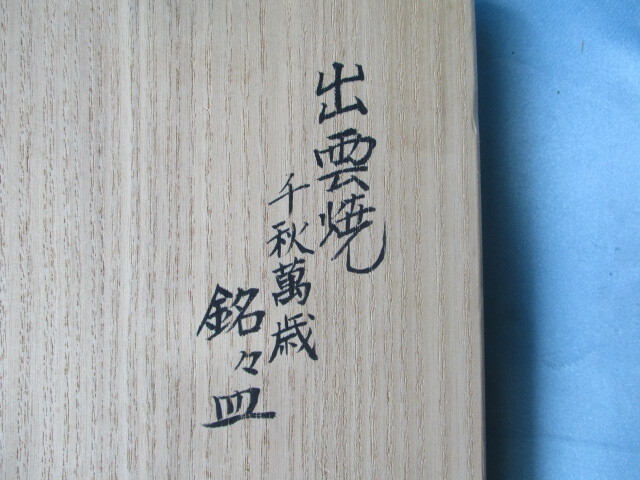 出雲焼
千秋萬歳
銘々皿